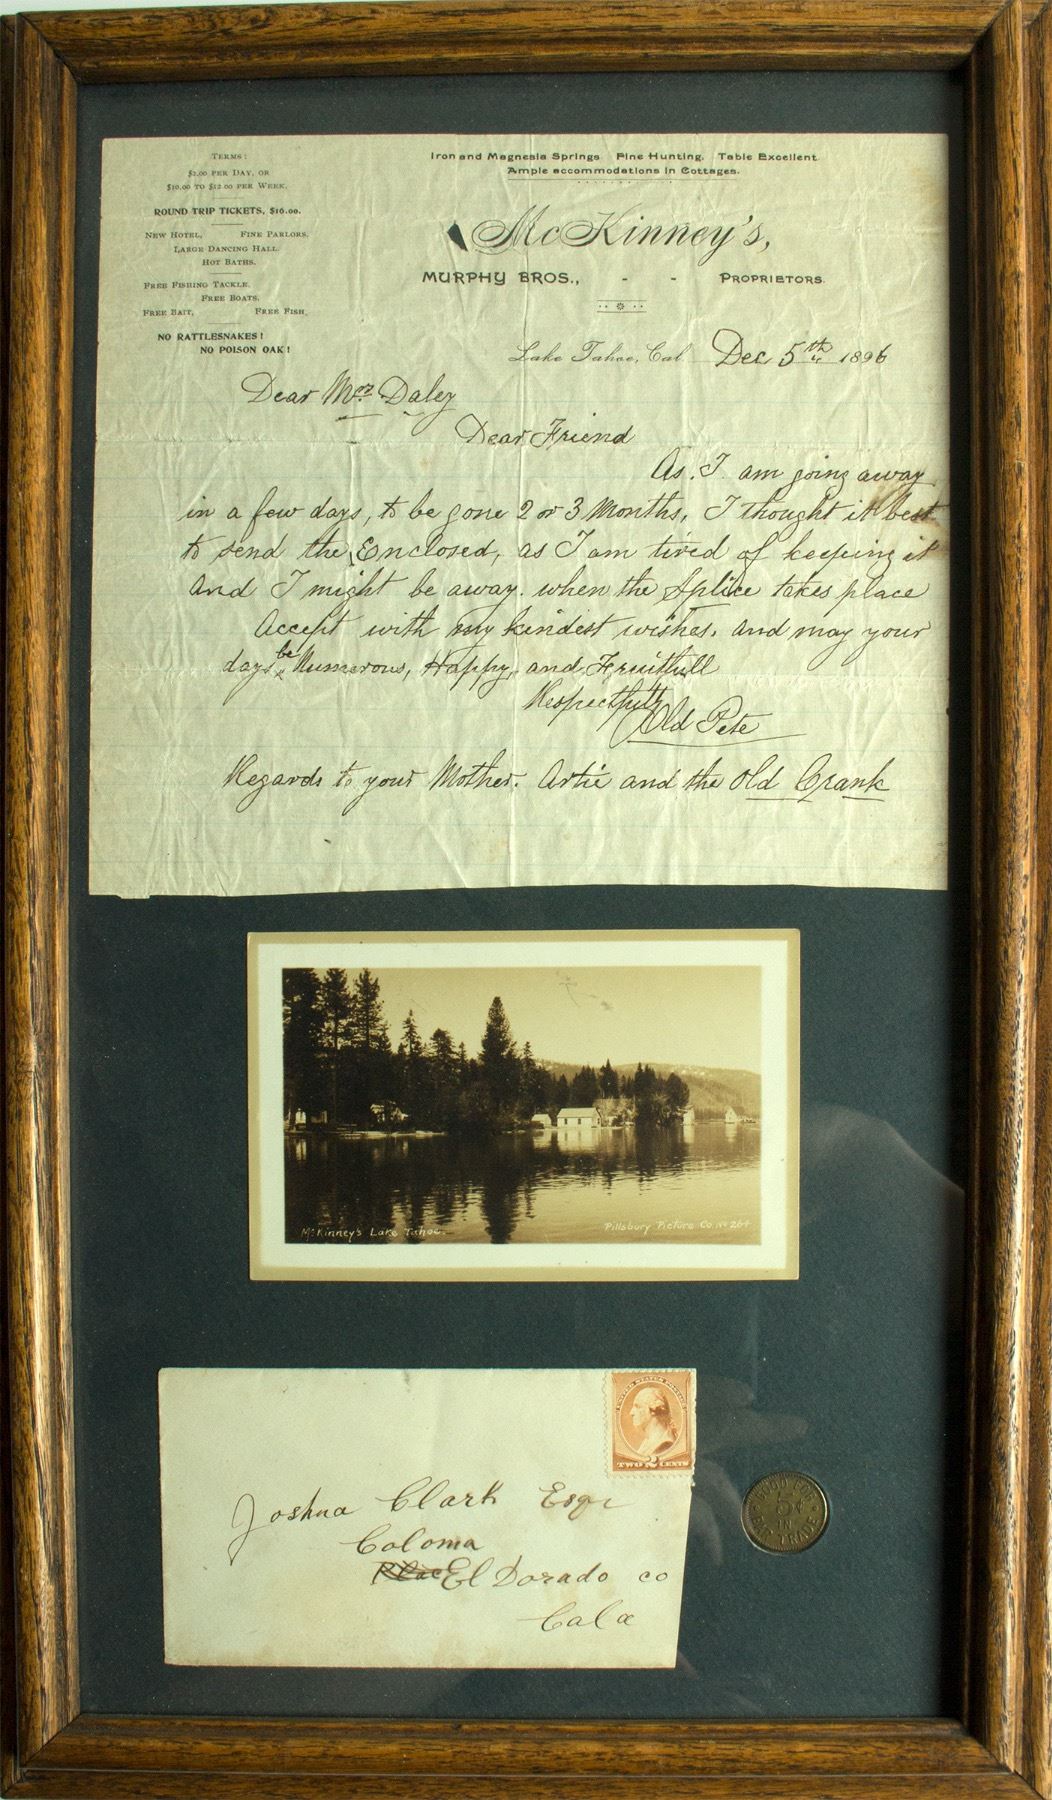 TERMS:
$2.00 PER DAY, OR
$10.00 TO $12.00 PER WEEK.
ROUND TRIP TICKETS, $16.00.
NEW HOTEL, FINE PARLORS.
LARGE DANCING HALL.
HOT BATHS.
FREE FISHING TACKLE.
FREE BOATS.
FREE BAIT, FREE FISH.
NO RATTLESNAKES!
NO POISON OAK!
Iron and Magnesia Springs Fine Hunting. Table Excellent
Ample accommodations in Cottages.
McKinney's,
MURPHY BROS., - - PROPRIETORS.
Lake Tahoe, Cal. Dec 5th 1896
Dear Daley
Dear Friend
As. I am going away
in a few days, to be gone 2 or 3 Months, I thought it best
to send the Enclosed, as I am tired of keeping it
and I might be away. when the Splice takes place
Accept with my kindest wishes. and may your
days be Numerous, Happy, and Fruitfull
Respectfully
Old Pete
Regards to your Mother. Artie and the Old Crank
McKinney's Lake Tahoe.
Pillsbury Picture Co No 264
UNITED STATES POSTAGE
TWO 2 CENTS
Joshua Clark Esqr
Coloma
El Dorado co
Cala
GOOD FOR
5¢
IN
TRADE